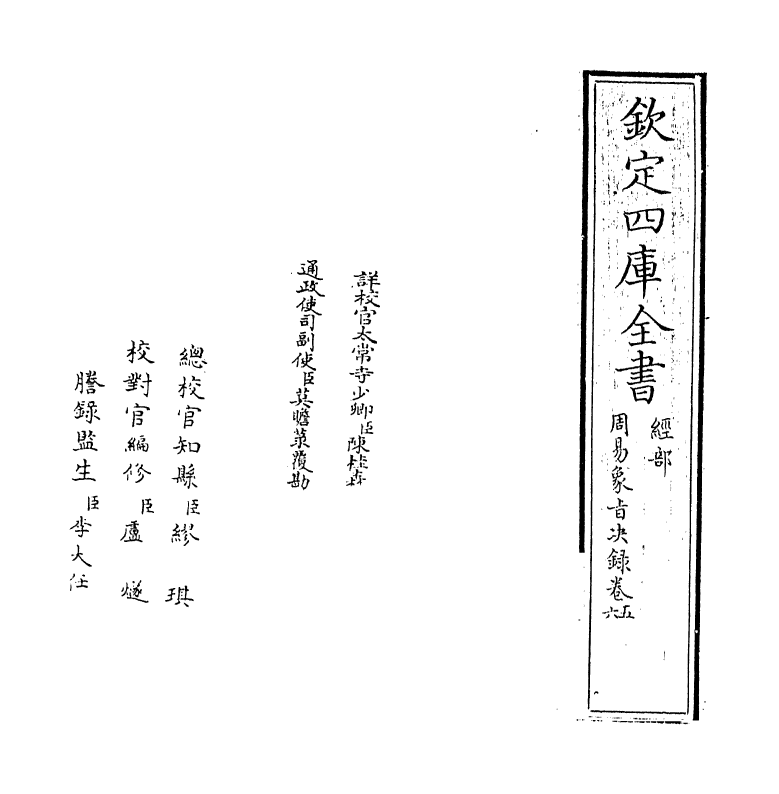 欽定四庫全書
經部
周易象旨决録卷五六
詳校官太常寺少卿臣陳桂森
通政使司副使臣莫瞻菉覆勘
總校官知縣臣繆琪
校對官編修臣盧燧
謄録監生臣李大任